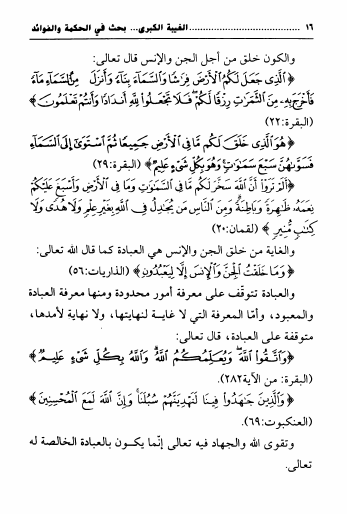 ١٦ ........................ الغيبة الكبرى... بحث في الحكمة والفوائد
والكون خلق من أجل الجن والإنس قال تعالى:
﴿ٱلَّذِى جَعَلَ لَكُمُ ٱلْأَرْضَ فِرَٰشًا وَٱلسَّمَآءَ بِنَآءً وَأَنزَلَ مِنَ ٱلسَّمَآءِ مَآءً
فَأَخْرَجَ بِهِۦ مِنَ ٱلثَّمَرَٰتِ رِزْقًا لَّكُمْ ۖ فَلَا تَجْعَلُوا۟ لِلَّهِ أَندَادًا وَأَنتُمْ تَعْلَمُونَ﴾
(البقرة:٢٢)
﴿هُوَ ٱلَّذِى خَلَقَ لَكُم مَّا فِى ٱلْأَرْضِ جَمِيعًا ثُمَّ ٱسْتَوَىٰٓ إِلَى ٱلسَّمَآءِ
فَسَوَّىٰهُنَّ سَبْعَ سَمَٰوَٰتٍ ۚ وَهُوَ بِكُلِّ شَىْءٍ عَلِيمٌ﴾ (البقرة:٢٩)
﴿أَلَمْ تَرَوْا۟ أَنَّ ٱللَّهَ سَخَّرَ لَكُم مَّا فِى ٱلسَّمَٰوَٰتِ وَمَا فِى ٱلْأَرْضِ وَأَسْبَغَ عَلَيْكُمْ
نِعَمَهُۥ ظَٰهِرَةً وَبَاطِنَةً ۗ وَمِنَ ٱلنَّاسِ مَن يُجَٰدِلُ فِى ٱللَّهِ بِغَيْرِ عِلْمٍ وَلَا هُدًى وَلَا
كِتَٰبٍ مُّنِيرٍ﴾ (لقمان:٢٠)
والغاية من خلق الجن والإنس هي العبادة كما قال الله تعالى:
﴿وَمَا خَلَقْتُ ٱلْجِنَّ وَٱلْإِنسَ إِلَّا لِيَعْبُدُونِ﴾ (الذاريات:٥٦)
والعبادة تتوقّف على معرفة أمور محدودة ومنها معرفة العبادة
والمعبود، وأمّا المعرفة التي لا غايـة لنهايتها، ولا نهاية لأمدها،
متوقفة على العبادة، قال تعالى:
﴿وَٱتَّقُوا۟ ٱللَّهَ ۖ وَيُعَلِّمُكُمُ ٱللَّهُ ۗ وَٱللَّهُ بِكُلِّ شَىْءٍ عَلِيمٌ﴾
(البقرة: من الآية٢٨٢).
﴿وَٱلَّذِينَ جَٰهَدُوا۟ فِينَا لَنَهْدِيَنَّهُمْ سُبُلَنَا ۚ وَإِنَّ ٱللَّهَ لَمَعَ ٱلْمُحْسِنِينَ﴾
(العنكبوت:٦٩).
وتقوى الله والجهاد فيه تعالى إنّما يكـون بالعبادة الخالصة له
تعالى.